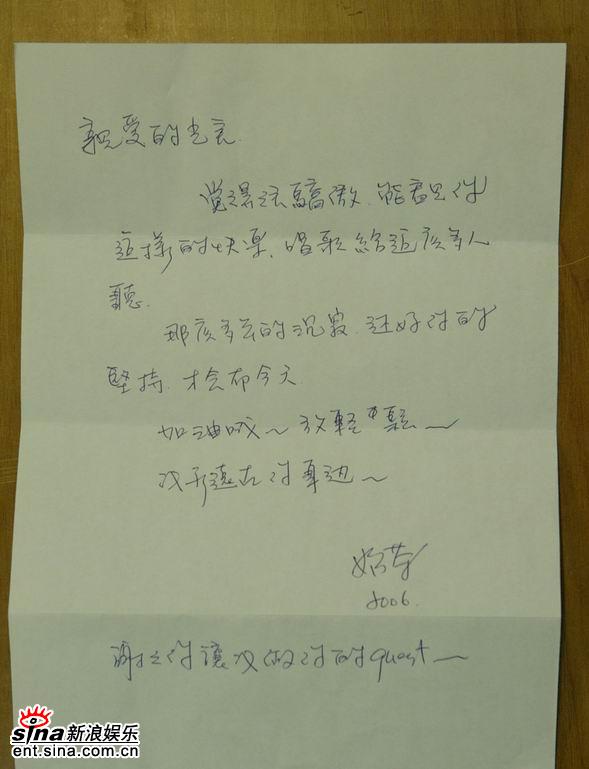 親爱的光良.
覺得很驕傲.能看見你
這樣的快樂.唱歌給這麼多人
聽.
那麼多年的沉寂.还好你的
堅持.才会有今天.
加油哦～放輕鬆～
我永遠在你身边～
奶茶
2006.
謝謝你讓我做你的guest～
sina新浪娱乐
ent.sina.com.cn